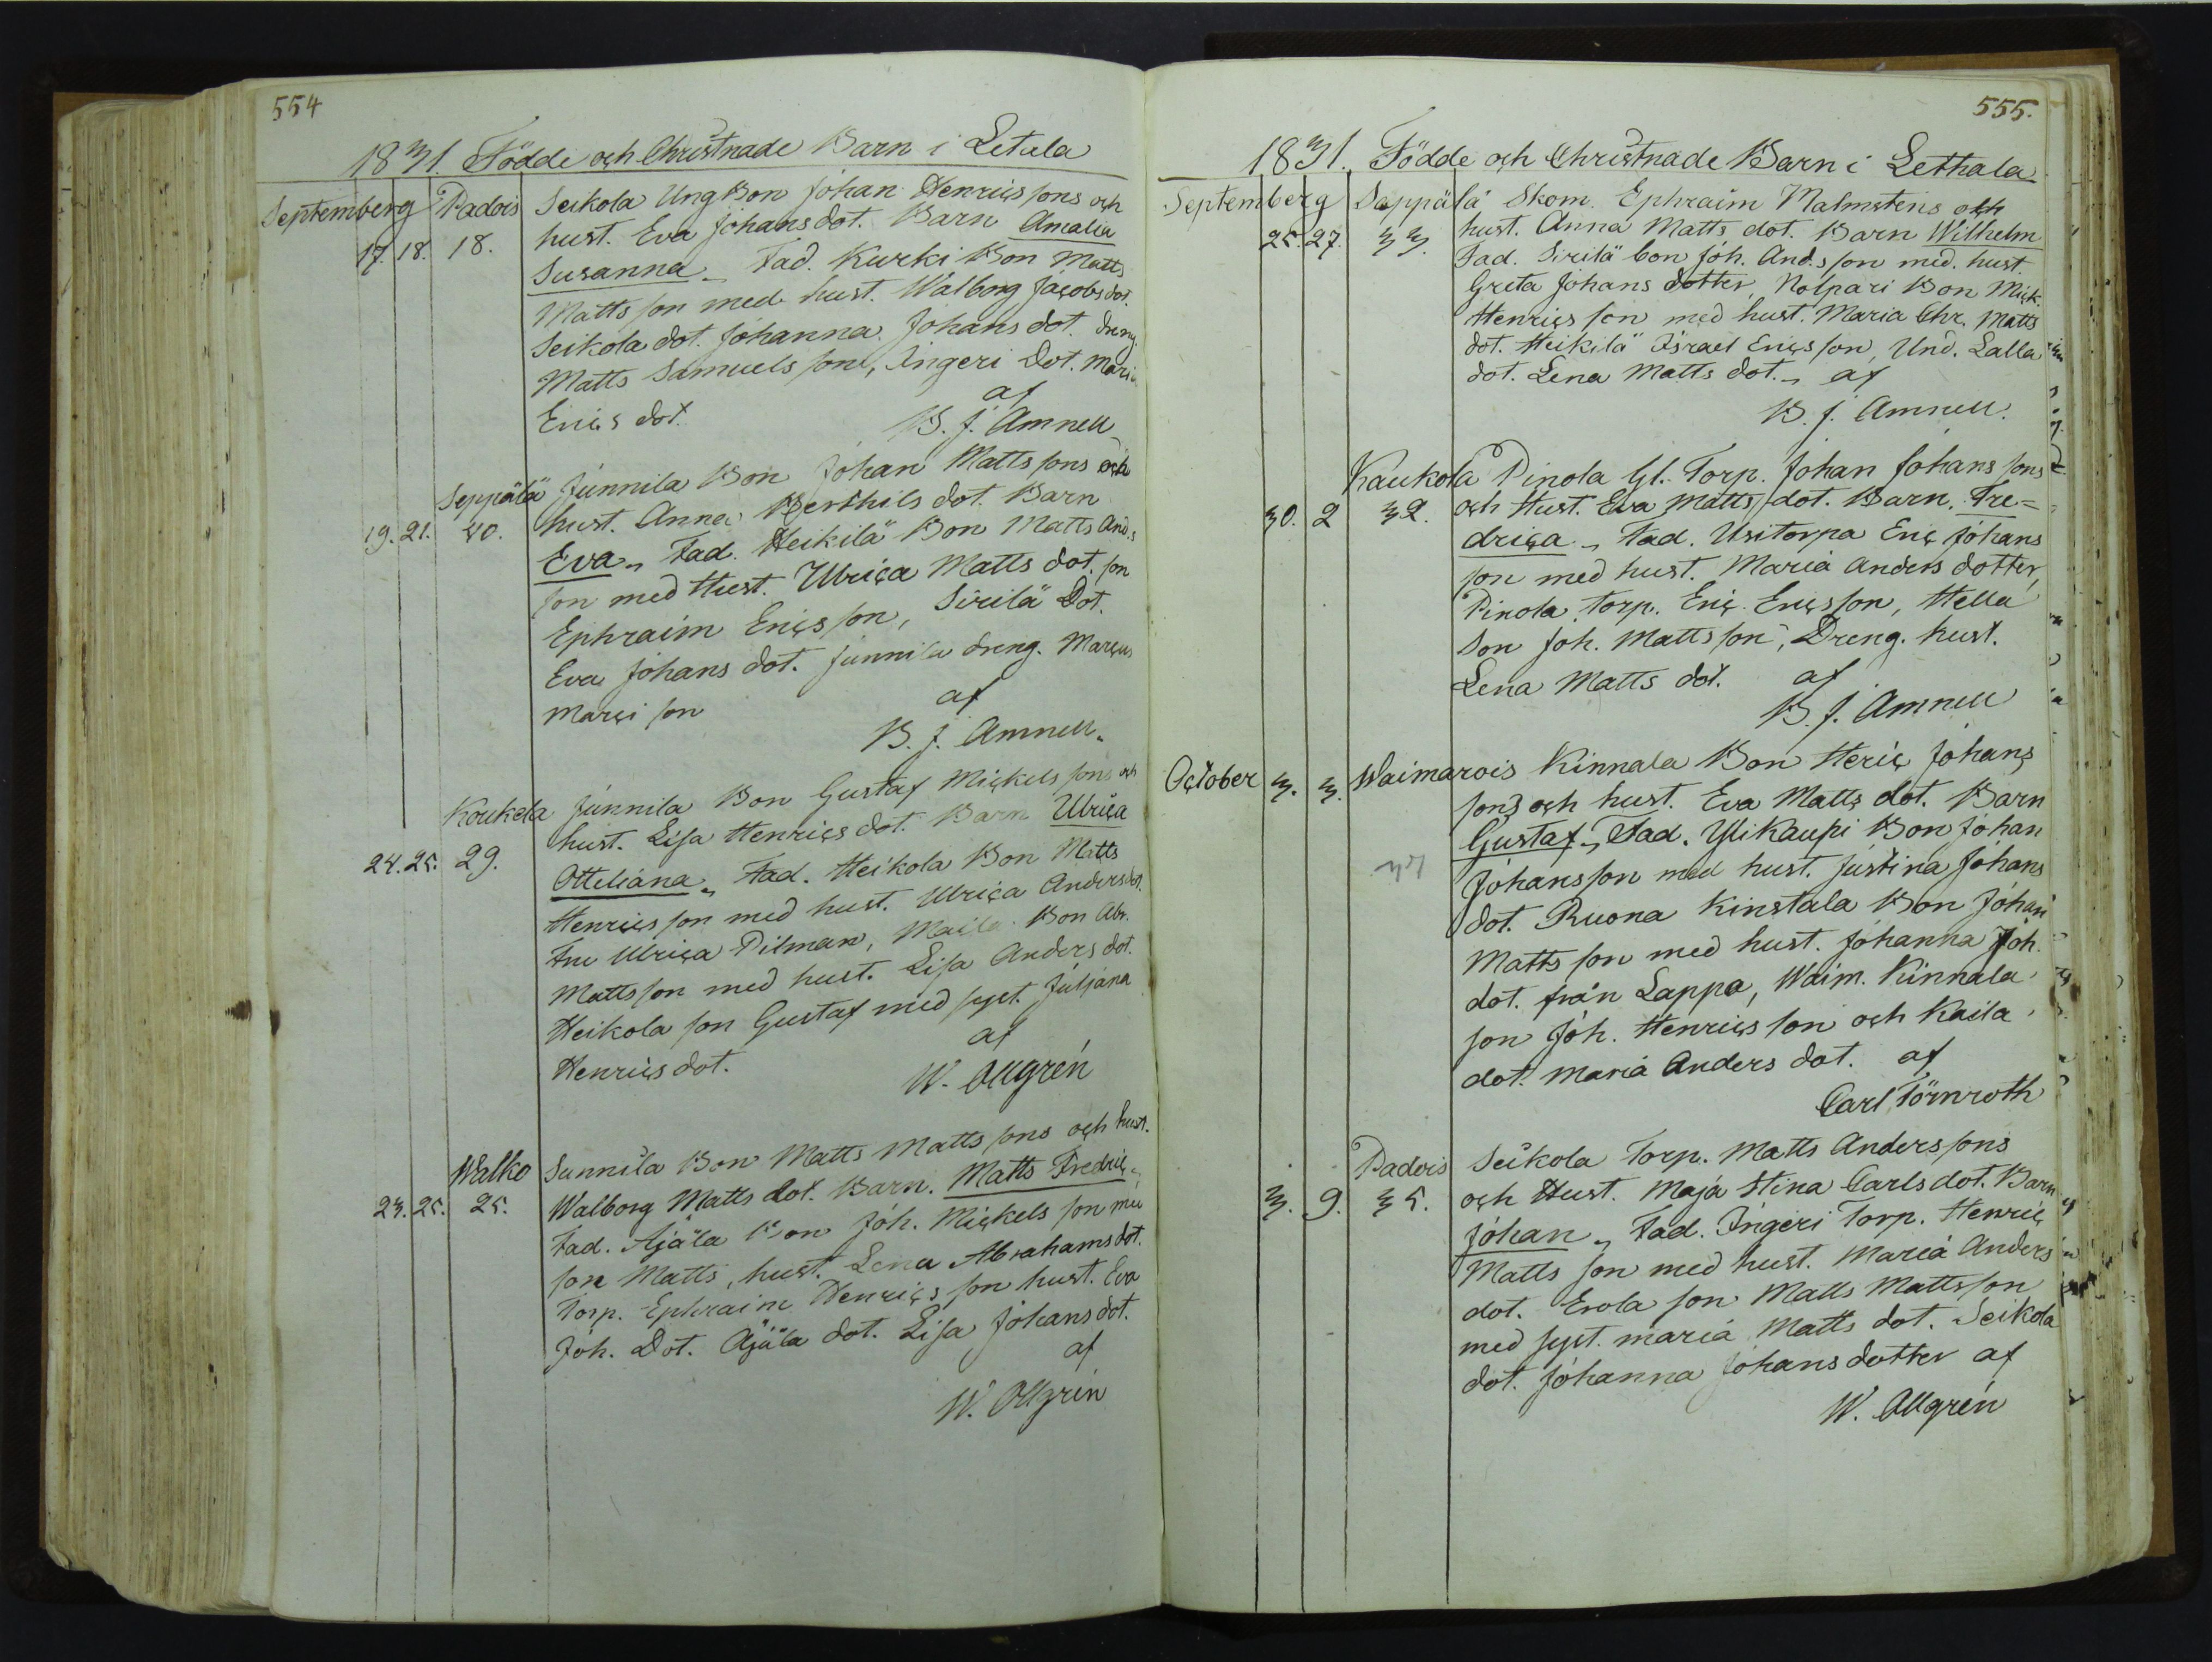 554
1831. Födde och Christnade Barn i Letala
September Padois Seikola Ung Bon Johan Henrics sons och
17. 18. 18. hust. Eva Johans dot. Barn Amalia
Susanna Fad. Kurki Bon Matts
Matts son med hust. Walborg Jacobs dot.
Seikola dot. Johanna Johans dot. dreng
Matts Samuels son, Ingeri Dot. Maria
Erics dot. af
B. J. Amnell
Seppälä Junnila Bon Johan Matts sons och
19. 21. 40. hust. Anna Berthils dot. Barn
Eva Fad. Heikilä Bon Matts And.s
son med Hust. Ulrica Matts dot. son
Ephraim Erics son, Sirilä Dot.
Eva Johans dot. Junnila dreng. Marcus
Marci son af
B. J. Amnell.
Koukela Junnila Bon Gustaf Mickels sons och
24. 25. 29. hust. Lisa Henrics dot. Barn Ulrica
Otteliana Fad. Heikola Bon Matts
Henrics son med hust. Ulrica Anders dot.
Fru Ulrica Pilman, Maila Bon Abr.
Mattsson med hust. Lisa Anders dot.
Heikola son Gustaf med syst. Juljana
Henrics dot. af
W. Allgrén
Walko Sunnila Bon Matts Matts sons och hust.
23. 25. 25. Walborg Matts dot. Barn. Matts Fredric
Fad. Äjälä Bon Joh. Mickels son med
son Matts, hust. Lena Abrahams dot.
Torp. Ephraim Henrics son hust. Eva
Joh. Dot. Äjälä dot. Lisa Johans dot.
af
W. Allgrén
555.
1831. Födde och Christnade Barn i Lethala
September Sappälä Skom. Ephraim Malmstens och
25. 27. 33. hust. Anna Matts dot. Barn Wilhelm
Fad. Sirilä bon Joh. And.s son med. hust.
Greta Johans dotter, Nolpari Bon Mick.
Henrics son med hust. Maria Chr. Matts
dot. Heikilä Israel Erics son, Und. Lalla
dot. Lena Matts dot. af
B. J. Amnell.
Kaukola Pinola Gl. Torp. Johan Johans sons
30. 2 32. och Hust. Eva Matts dot. Barn. Fre=
drica Fad. Usitorpa Eric Johans
son med hust. Maria Anders dotter,
Pinola Torp. Eric. Ericsson, Hella
Son Joh. Matts son, Dreng. hust.
Lena Matts dot. af
B. J. Amnell
October 3. 3. Waimarois Kinnala Bon Heric Johans
sons och hust. Eva Matts dot. Barn
Gustaf Fad. Ylikaupi Bon Johan
Johansson med hust. Justina Johans
dot. Ruona Kinstala Bon Johan
Matts son med hust. Johanna Joh.
dot. från Lappo, Waim. Kinnala
son Joh. Henrics son och Kaila
dot. Maria Anders dot. af
Carl Törnroth
Padois Seikola Torp. Matts Anders sons
3. 9. 35. och Hust. Maja Stina Carls dot. Barn
Johan Fad. Ingeri Torp. Henric
Matts son med hust. Maria Anders
dot. Erola son Matts Mattsson
med syst. Maria Matts dot. Seikola
dot. Johanna Johans dotter af
W. Allgrén